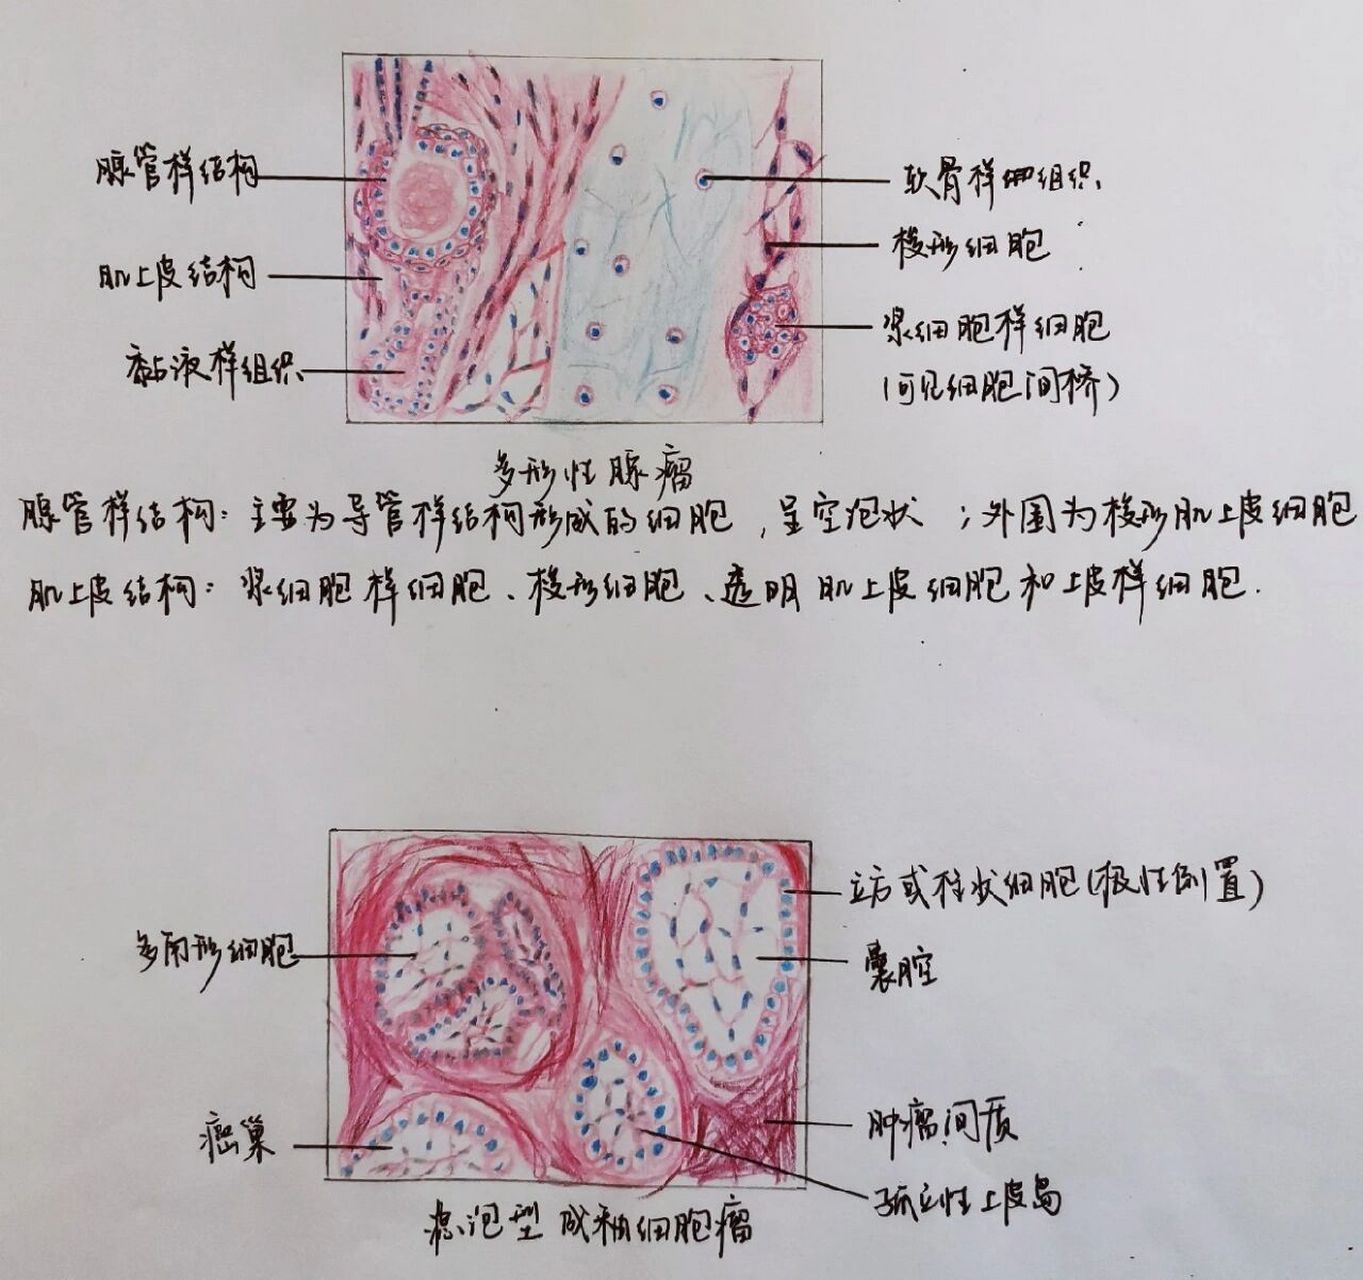 腺管样结构
肌上皮结构
黏液样组织
软骨样组织
梭形细胞
浆细胞样细胞
(可见细胞间桥)
多形性腺瘤
腺管样结构：主要为导管样结构形成的细胞，呈空泡状；外围为梭形肌上皮细胞
肌上皮结构：浆细胞样细胞、梭形细胞、透明肌上皮细胞和上皮样细胞.
多角形细胞
癌巢
立方或柱状细胞(极性倒置)
囊腔
肿瘤间质
孤立性上皮岛
滤泡型成釉细胞瘤